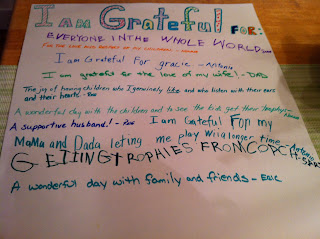 I am Grateful FOR:
EVERYONE IN THE WHOLE WORLD
FOR THE LOVE AND RESPECT OF MY CHILDREN -
I am Grateful For gracie - Antonio
I am grateful for the love of my wife! - DAD
The joy of having children who I genuinely like and who listen with their ears
and their hearts. - Rae
A wonderful day with the children and to see the kids get their trophys -
A supportive husband! - Rae I am Gateful For my
MaMa and Dada leting me play Wii a longer time - Antonio
GETTING TROPHIES FROM COACH -
A wonderful day with family and friends - Eric